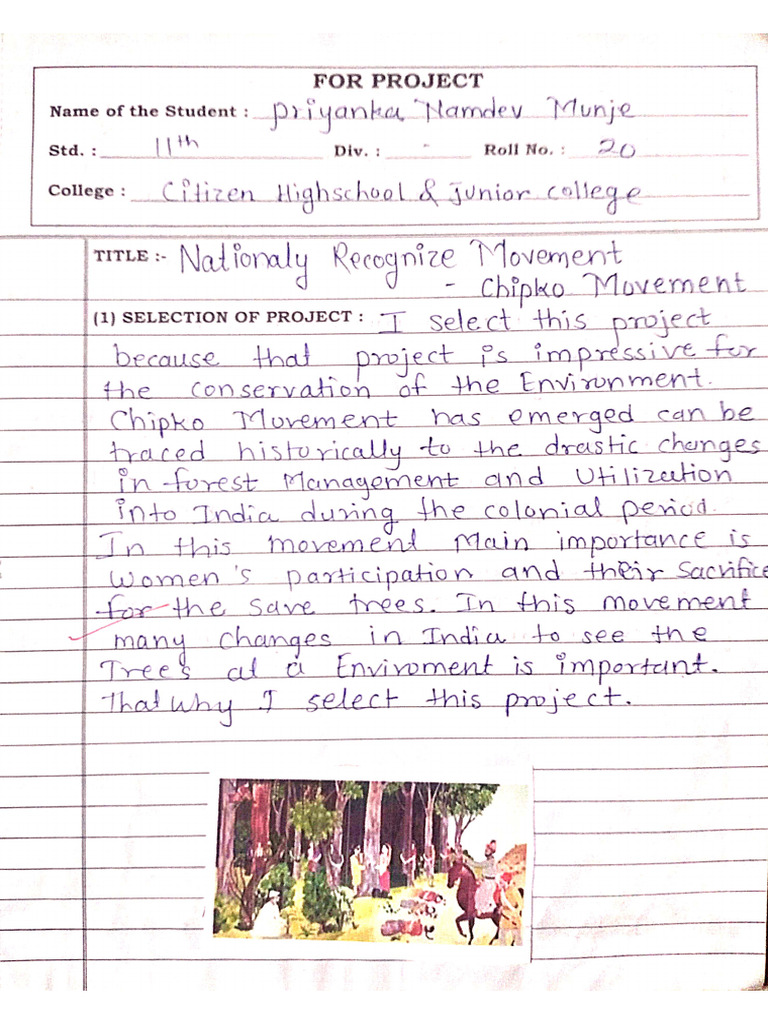 FOR PROJECT
Name of the Student : Priyanka Namdev Munje
Std. : 11th Div. : - Roll No. : 20
College : Citizen Highschool & junior college
TITLE :- Nationaly Recognize Movement
- Chipko Movement
(1) SELECTION OF PROJECT : I select this project
because that project is impressive for
the conservation of the Environment.
Chipko Movement has emerged can be
traced historically to the drastic changes
in forest Management and Utilization
into India during the colonial period.
In this movement Main importance is
Women's participation and their Sacrifice
for the save trees. In this movement
many changes in India to see the
Trees at a Enviroment is important.
That why I select this project.